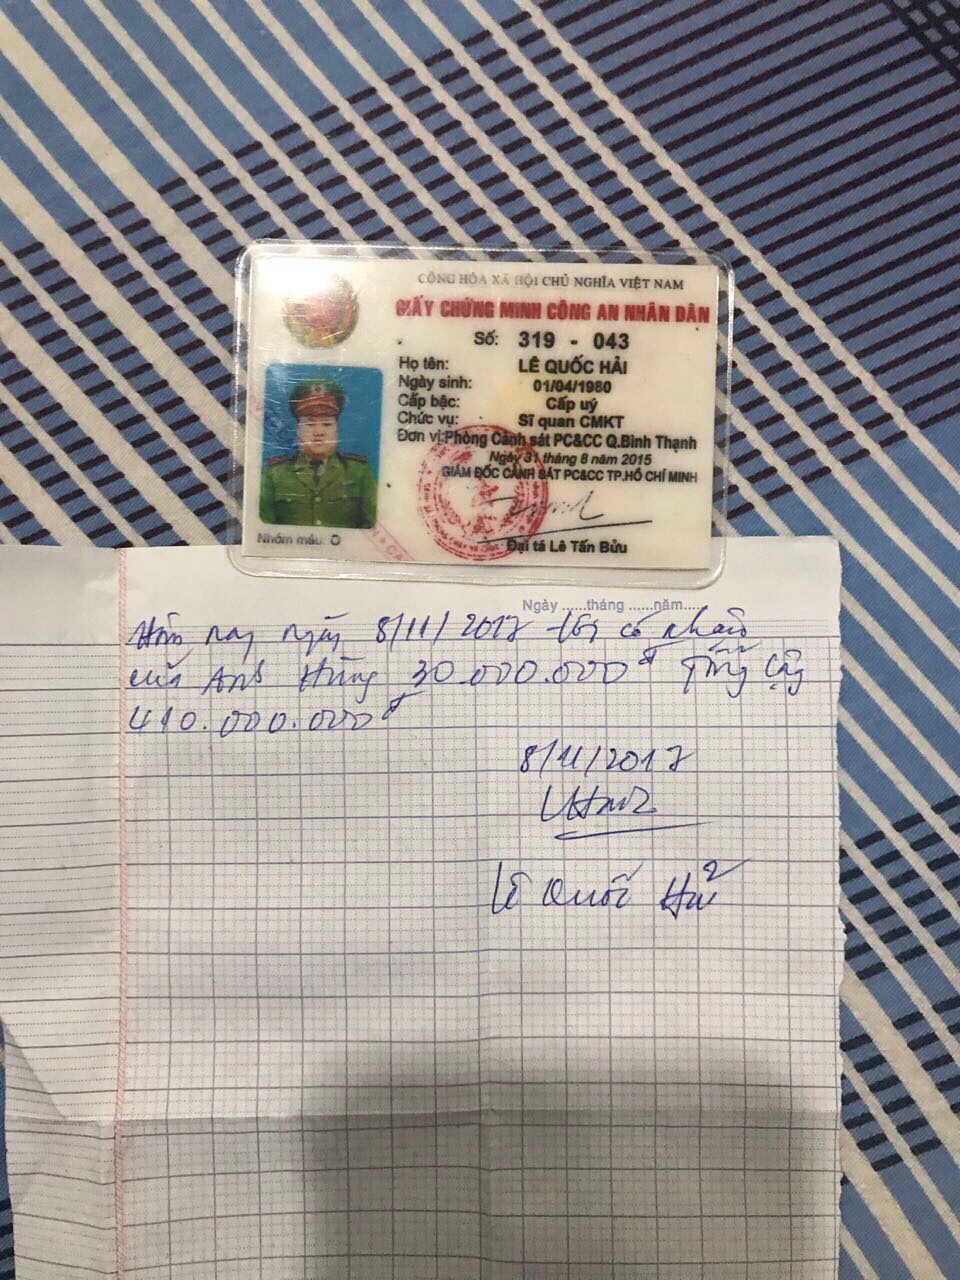 CỘNG HÒA XÃ HỘI CHỦ NGHĨA VIỆT NAM
GIẤY CHỨNG MINH CÔNG AN NHÂN DÂN
Số: 319 - 043
Họ tên: LÊ QUỐC HẢI
Ngày sinh: 01/04/1980
Cấp bậc: Cấp uý
Chức vụ: Sĩ quan CMKT
Đơn vị: Phòng Cảnh sát PC&CC Q.Bình Thạnh
Ngày 31 tháng 8 năm 2015
GIÁM ĐỐC CẢNH SÁT PC&CC TP.HỒ CHÍ MINH
Đại tá Lê Tấn Bửu
Nhóm máu: O
Ngày ......tháng ......năm....
Hôm nay ngày 8/11/2017 tôi có nhận
của Anh Hùng 30.000.000đ Tổng cộng
410.000.000đ
8/11/2017
Lê Quốc Hải